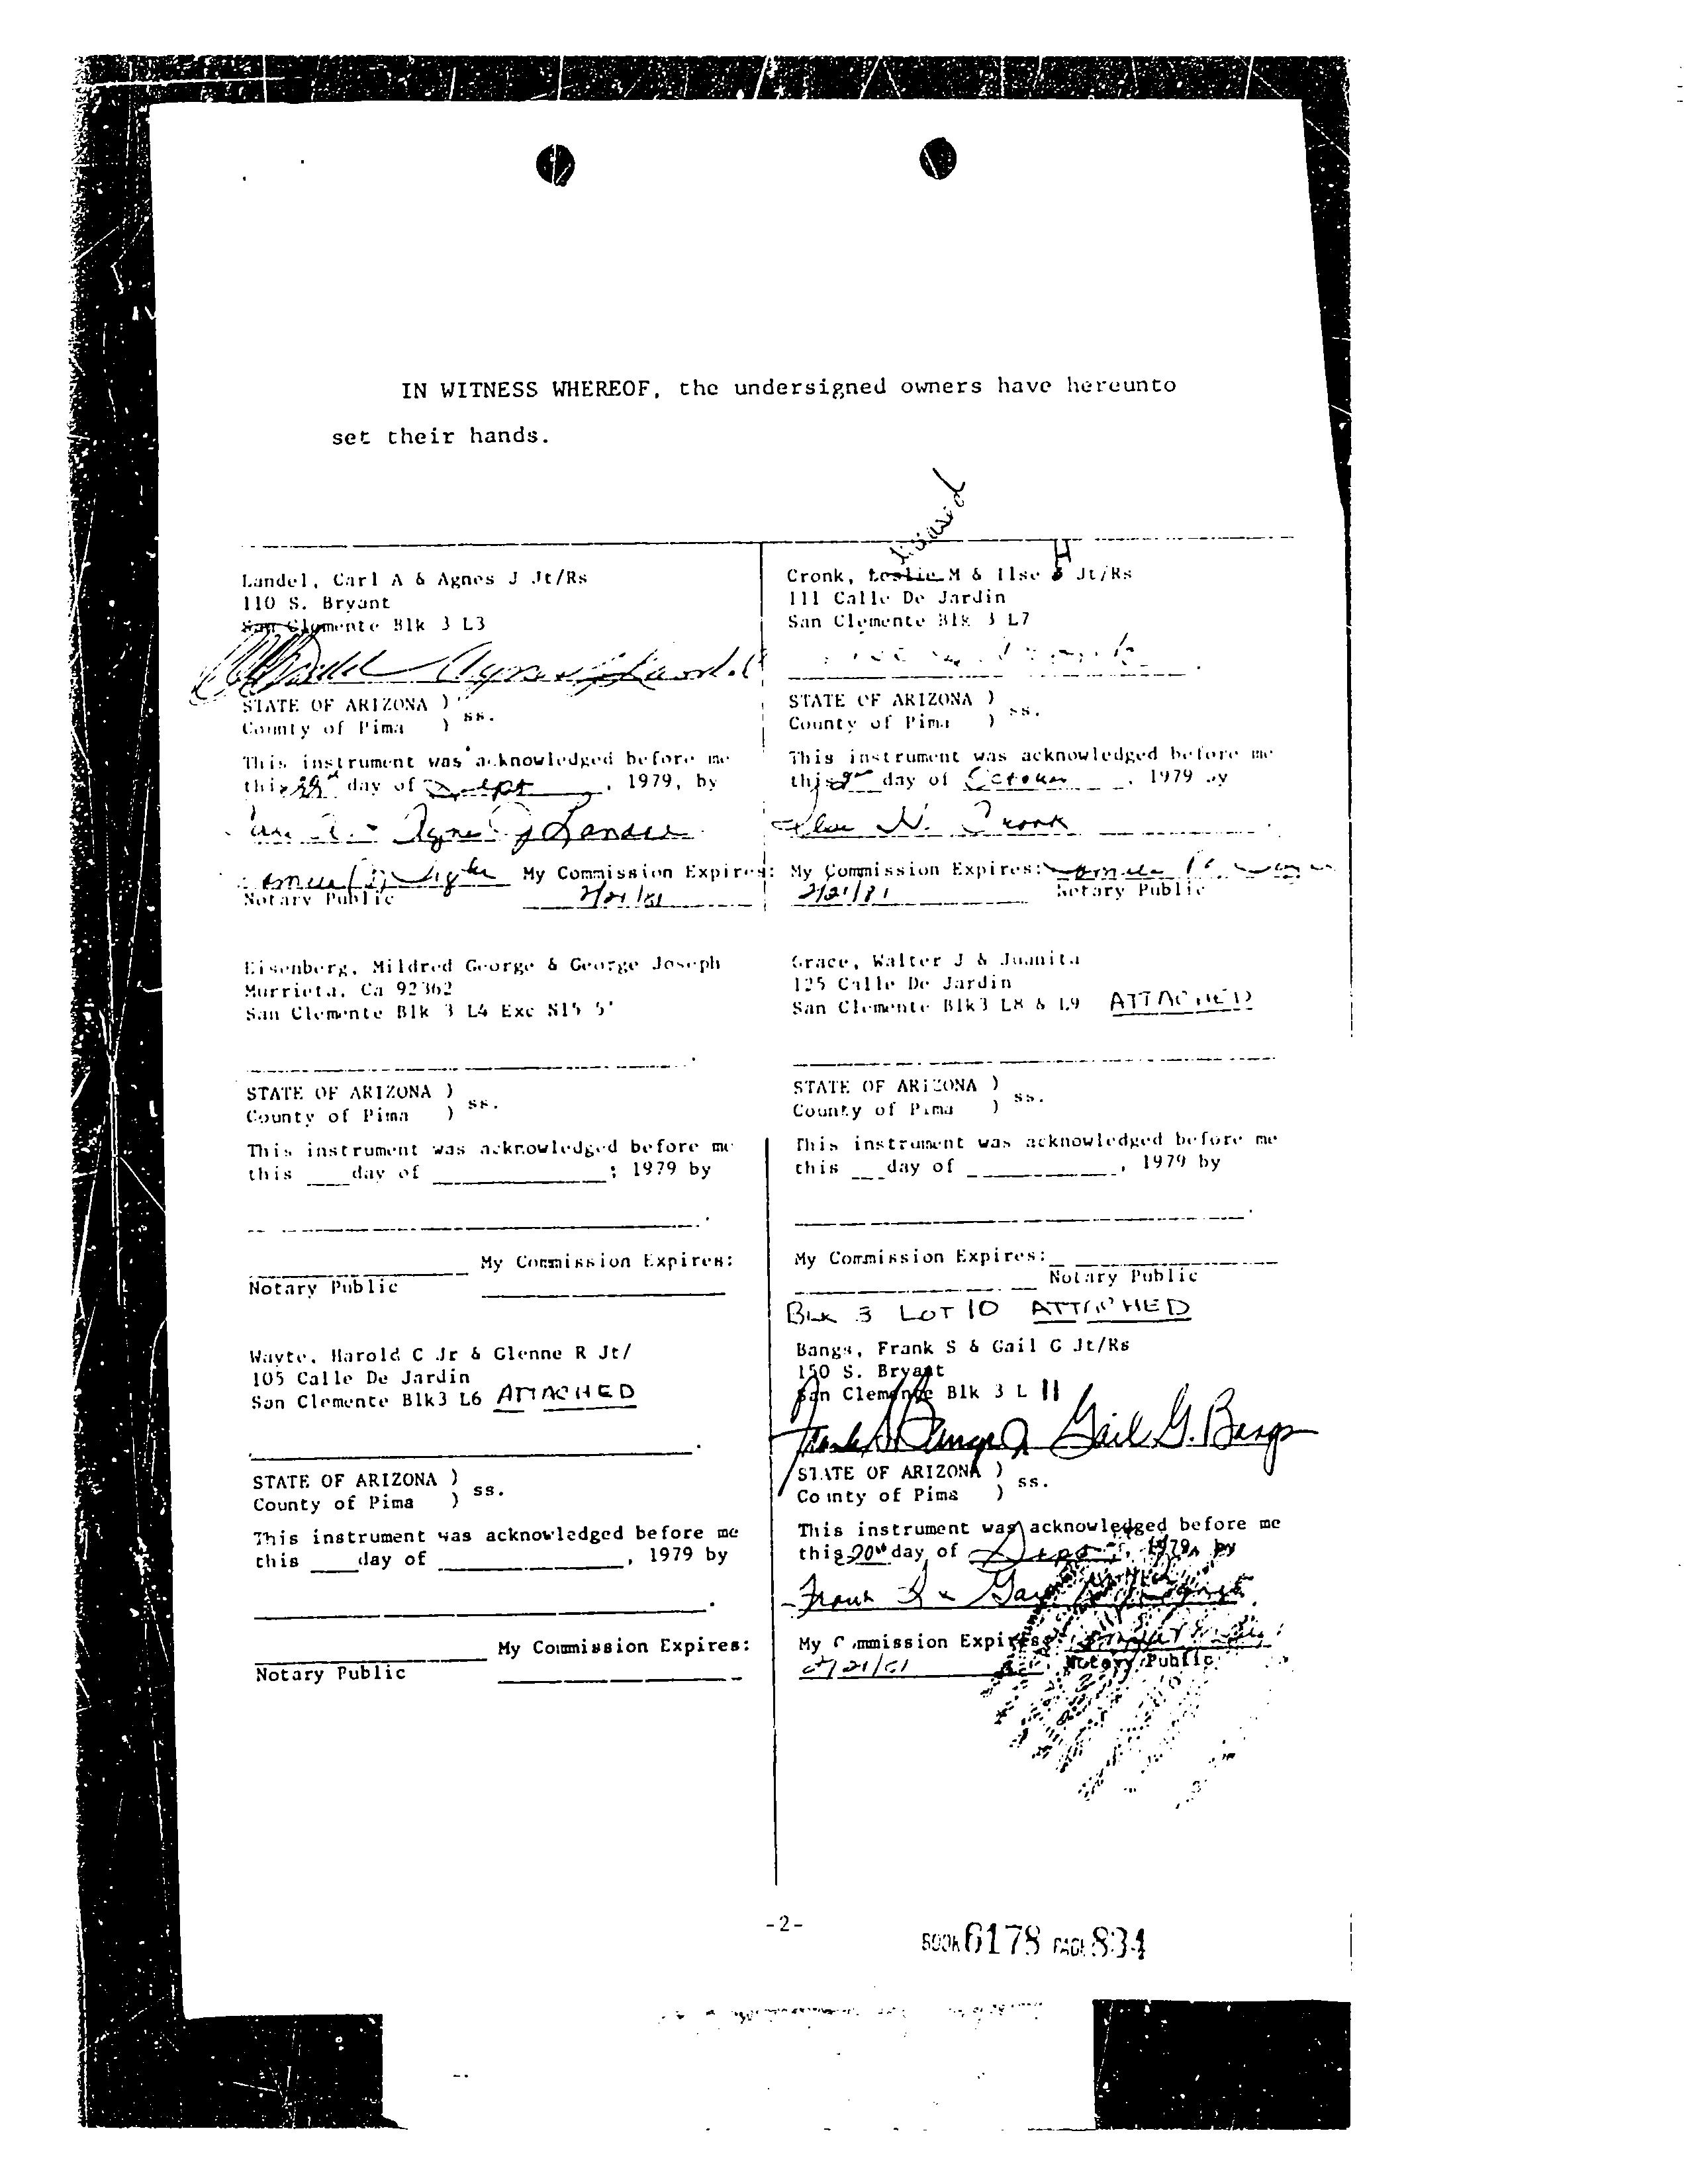 IN WITNESS WHEREOF, the undersigned owners have hereunto
set their hands.
Landel, Carl A & Agnes J Jt/Rs
110 S. Bryant
San Clemente Blk 3 L3
STATE OF ARIZONA )
County of Pima ) ss.
This instrument was acknowledged before me
this day of Sept, 1979, by
Agnes J Landel
My Commission Expires:
Notary Public 2/21/81
deceased
H
Cronk, Leslie M & Ilse Jt/Rs
111 Calle De Jardin
San Clemente Blk 3 L7
STATE OF ARIZONA )
County of Pima ) ss.
This instrument was acknowledged before me
this day of October, 1979 by
Ilse H. Cronk
My Commission Expires:
2/21/81 Notary Public
Eisenberg, Mildred George & George Joseph
Murrieta, Ca 92362
San Clemente Blk 3 L4 Exc N15 5'
STATE OF ARIZONA )
County of Pima ) ss.
This instrument was acknowledged before me
this ____day of ____________; 1979 by
My Commission Expires:
Notary Public
Grace, Walter J & Juanita
125 Calle De Jardin
San Clemente Blk3 L8 & L9 ATTACHED
STATE OF ARIZONA )
County of Pima ) ss.
This instrument was acknowledged before me
this ____day of ____________, 1979 by
My Commission Expires:
Notary Public
BLK 3 LOT 10 ATTACHED
Wayte, Harold C Jr & Glenne R Jt/
105 Calle De Jardin
San Clemente Blk3 L6 ATTACHED
STATE OF ARIZONA )
County of Pima ) ss.
This instrument was acknowledged before me
this ____day of ____________, 1979 by
My Commission Expires:
Notary Public
Bangs, Frank S & Gail G Jt/Rs
150 S. Bryant
San Clemente Blk 3 L 11
Gail G. Bangs
STATE OF ARIZONA )
County of Pima ) ss.
This instrument was acknowledged before me
this 20th day of Sept, 1979, by
Frank S &
My Commission Expires:
2/21/81 Notary Public
-2-
BOOK 6178 PAGE 834